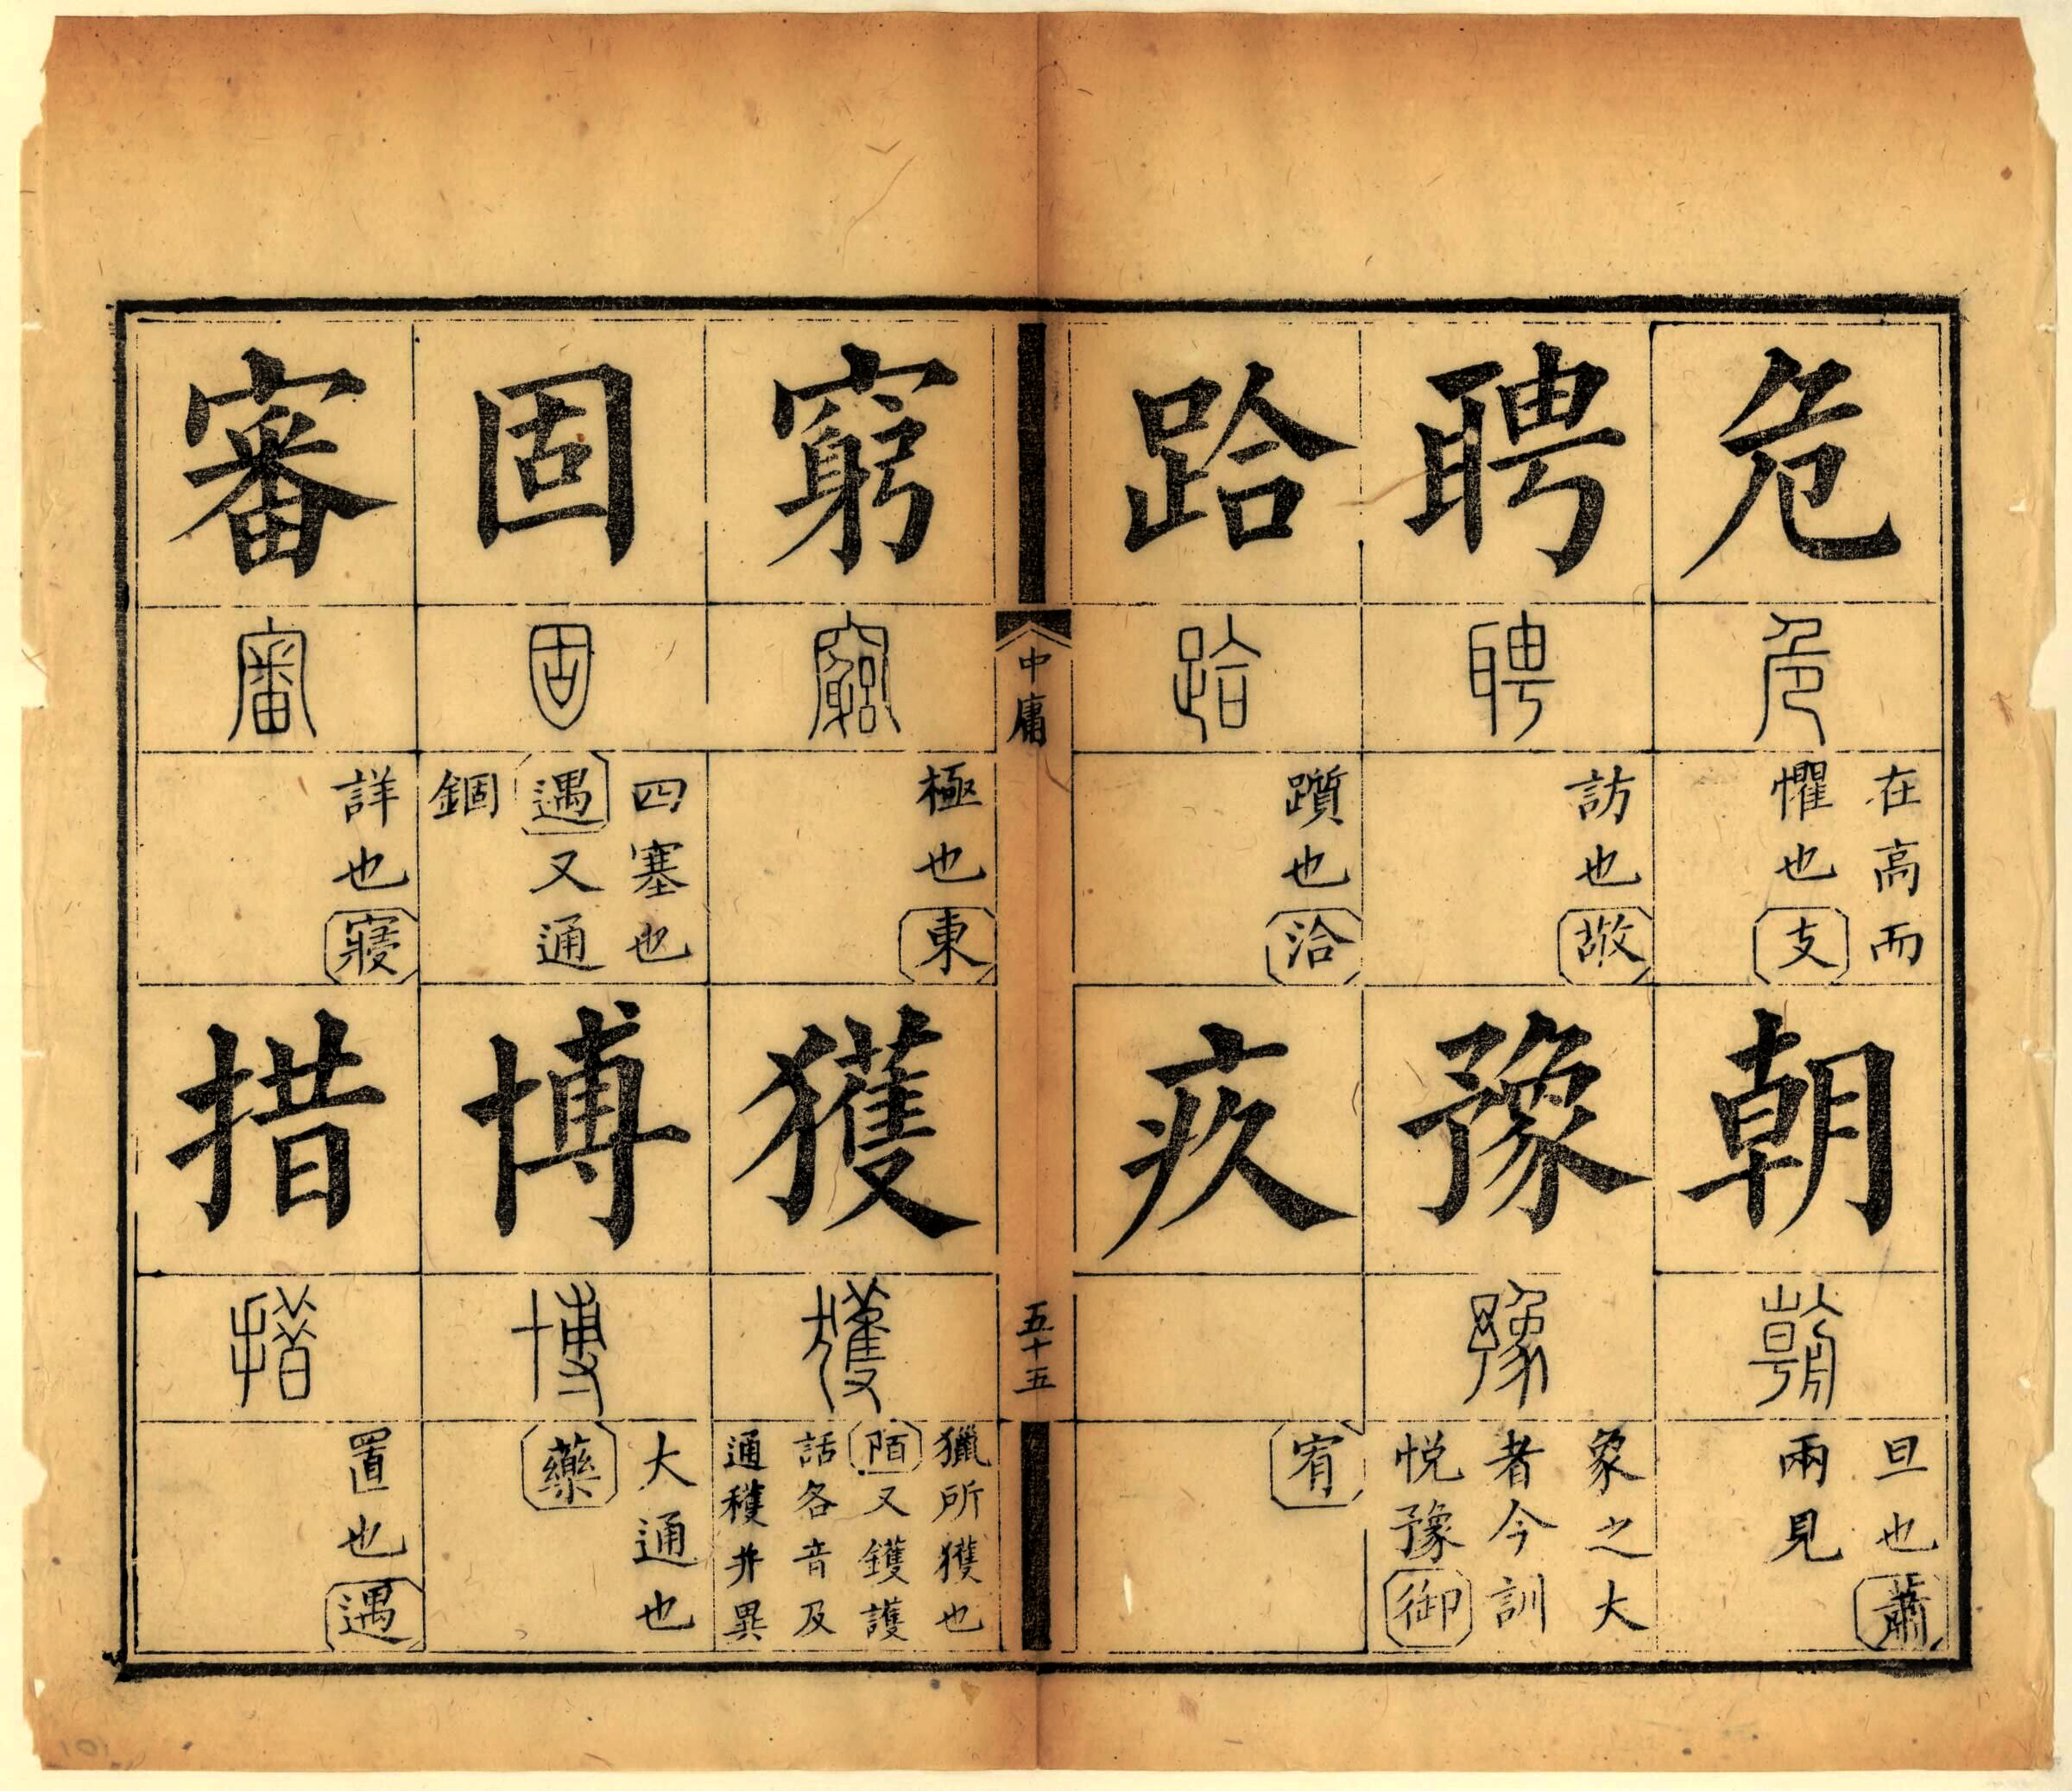 危
危
在高而
懼也支
朝
朝
旦也蕭
兩見
聘
聘
訪也敬
豫
豫
象之大
者今訓
悅豫御
跲
跲
躓也洽
疚
宥
中庸
五十五
窮
窮
極也東
獲
獲
獵所獲也
陌又鑊護
話各音及
通穫并異
固
固
四塞也
遇又通
錮
博
博
大通也
藥
審
審
詳也寢
措
措
置也遇
101